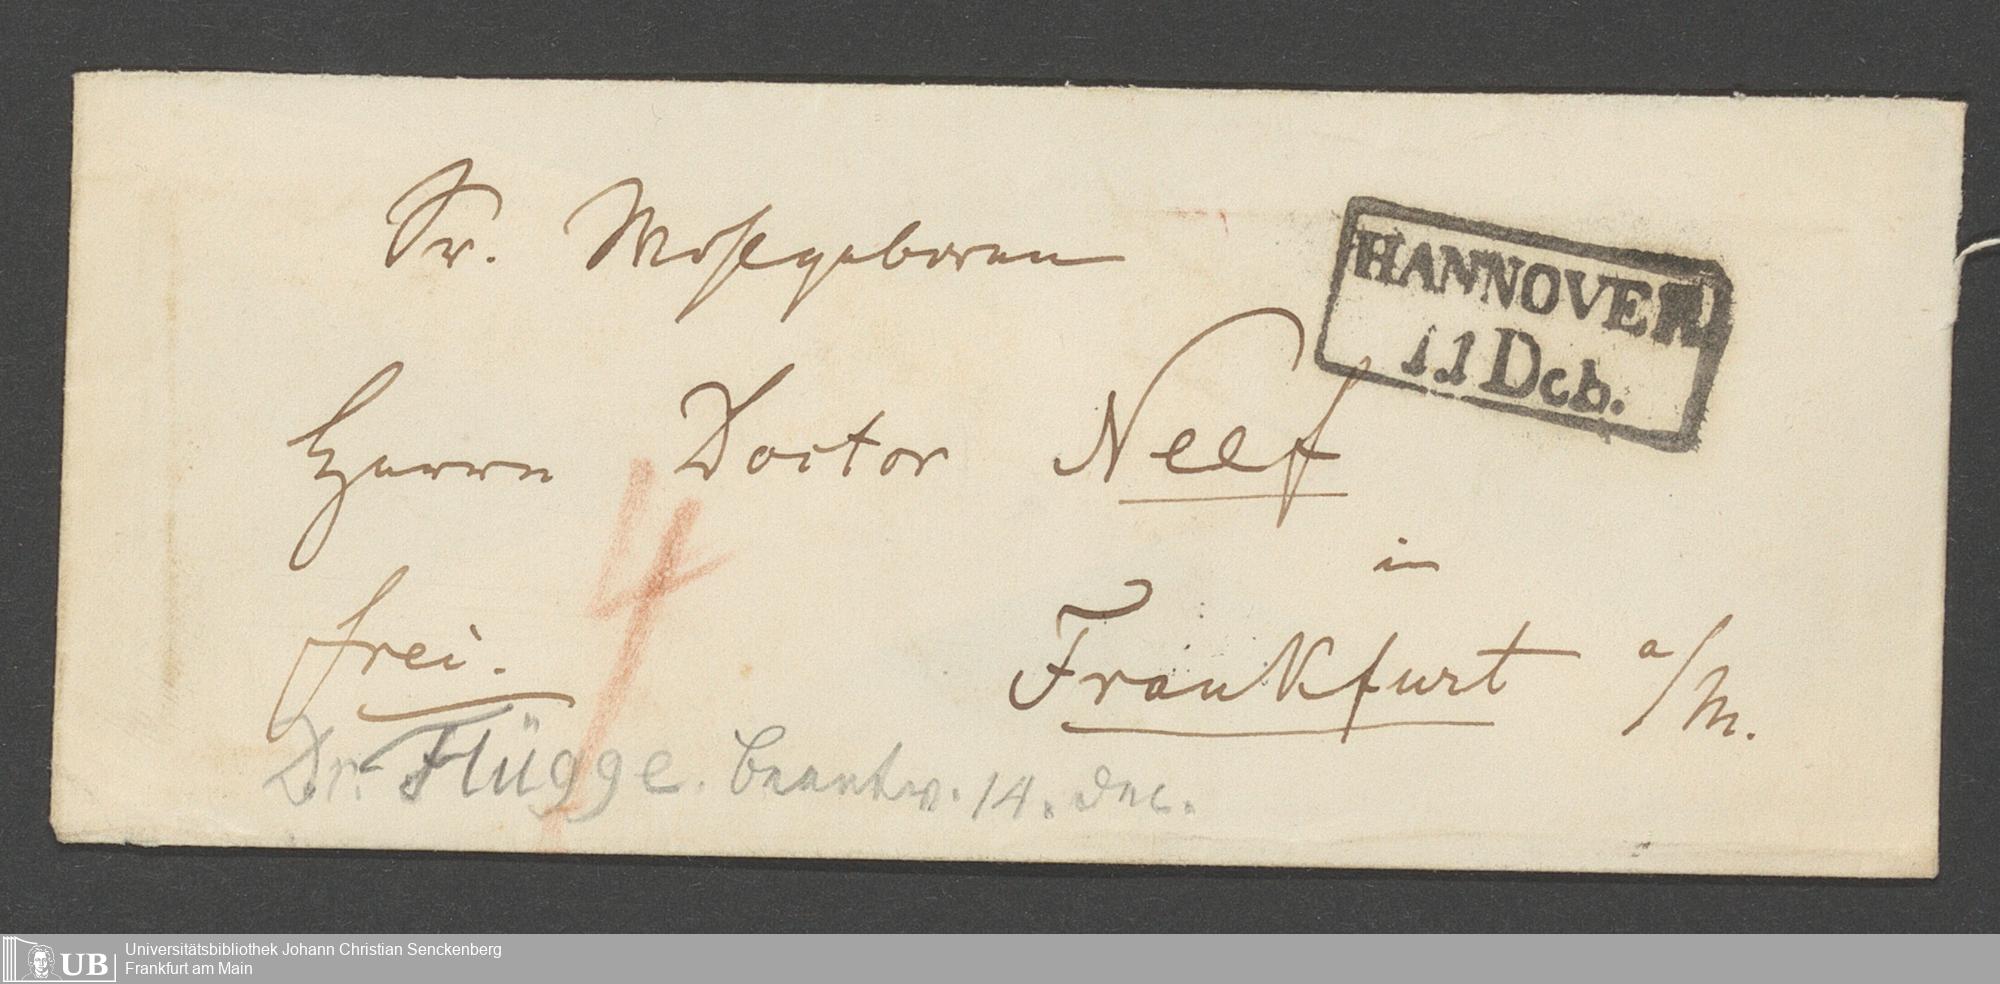 Sr. Wohlgeboren
HANNOVER
11 Dcb.
Herrn Doctor Neef
in
frei.
Frankfurt a/M.
4
Dr. Flügge. beantw. 14. Dec.
UB
Universitätsbibliothek Johann Christian Senckenberg
Frankfurt am Main